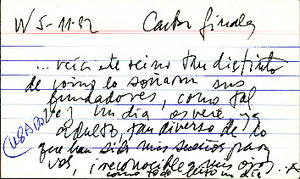 W 5-11-82 Carta finales
... veía este reino tan distinto
de como lo soñaron sus
fundadores, como tal
vez un día os veré ya
adulto, tan diverso de lo
que han sido mis sueños para
vos, irreconocible a mis ojos.
como todo en un día
(USADO)